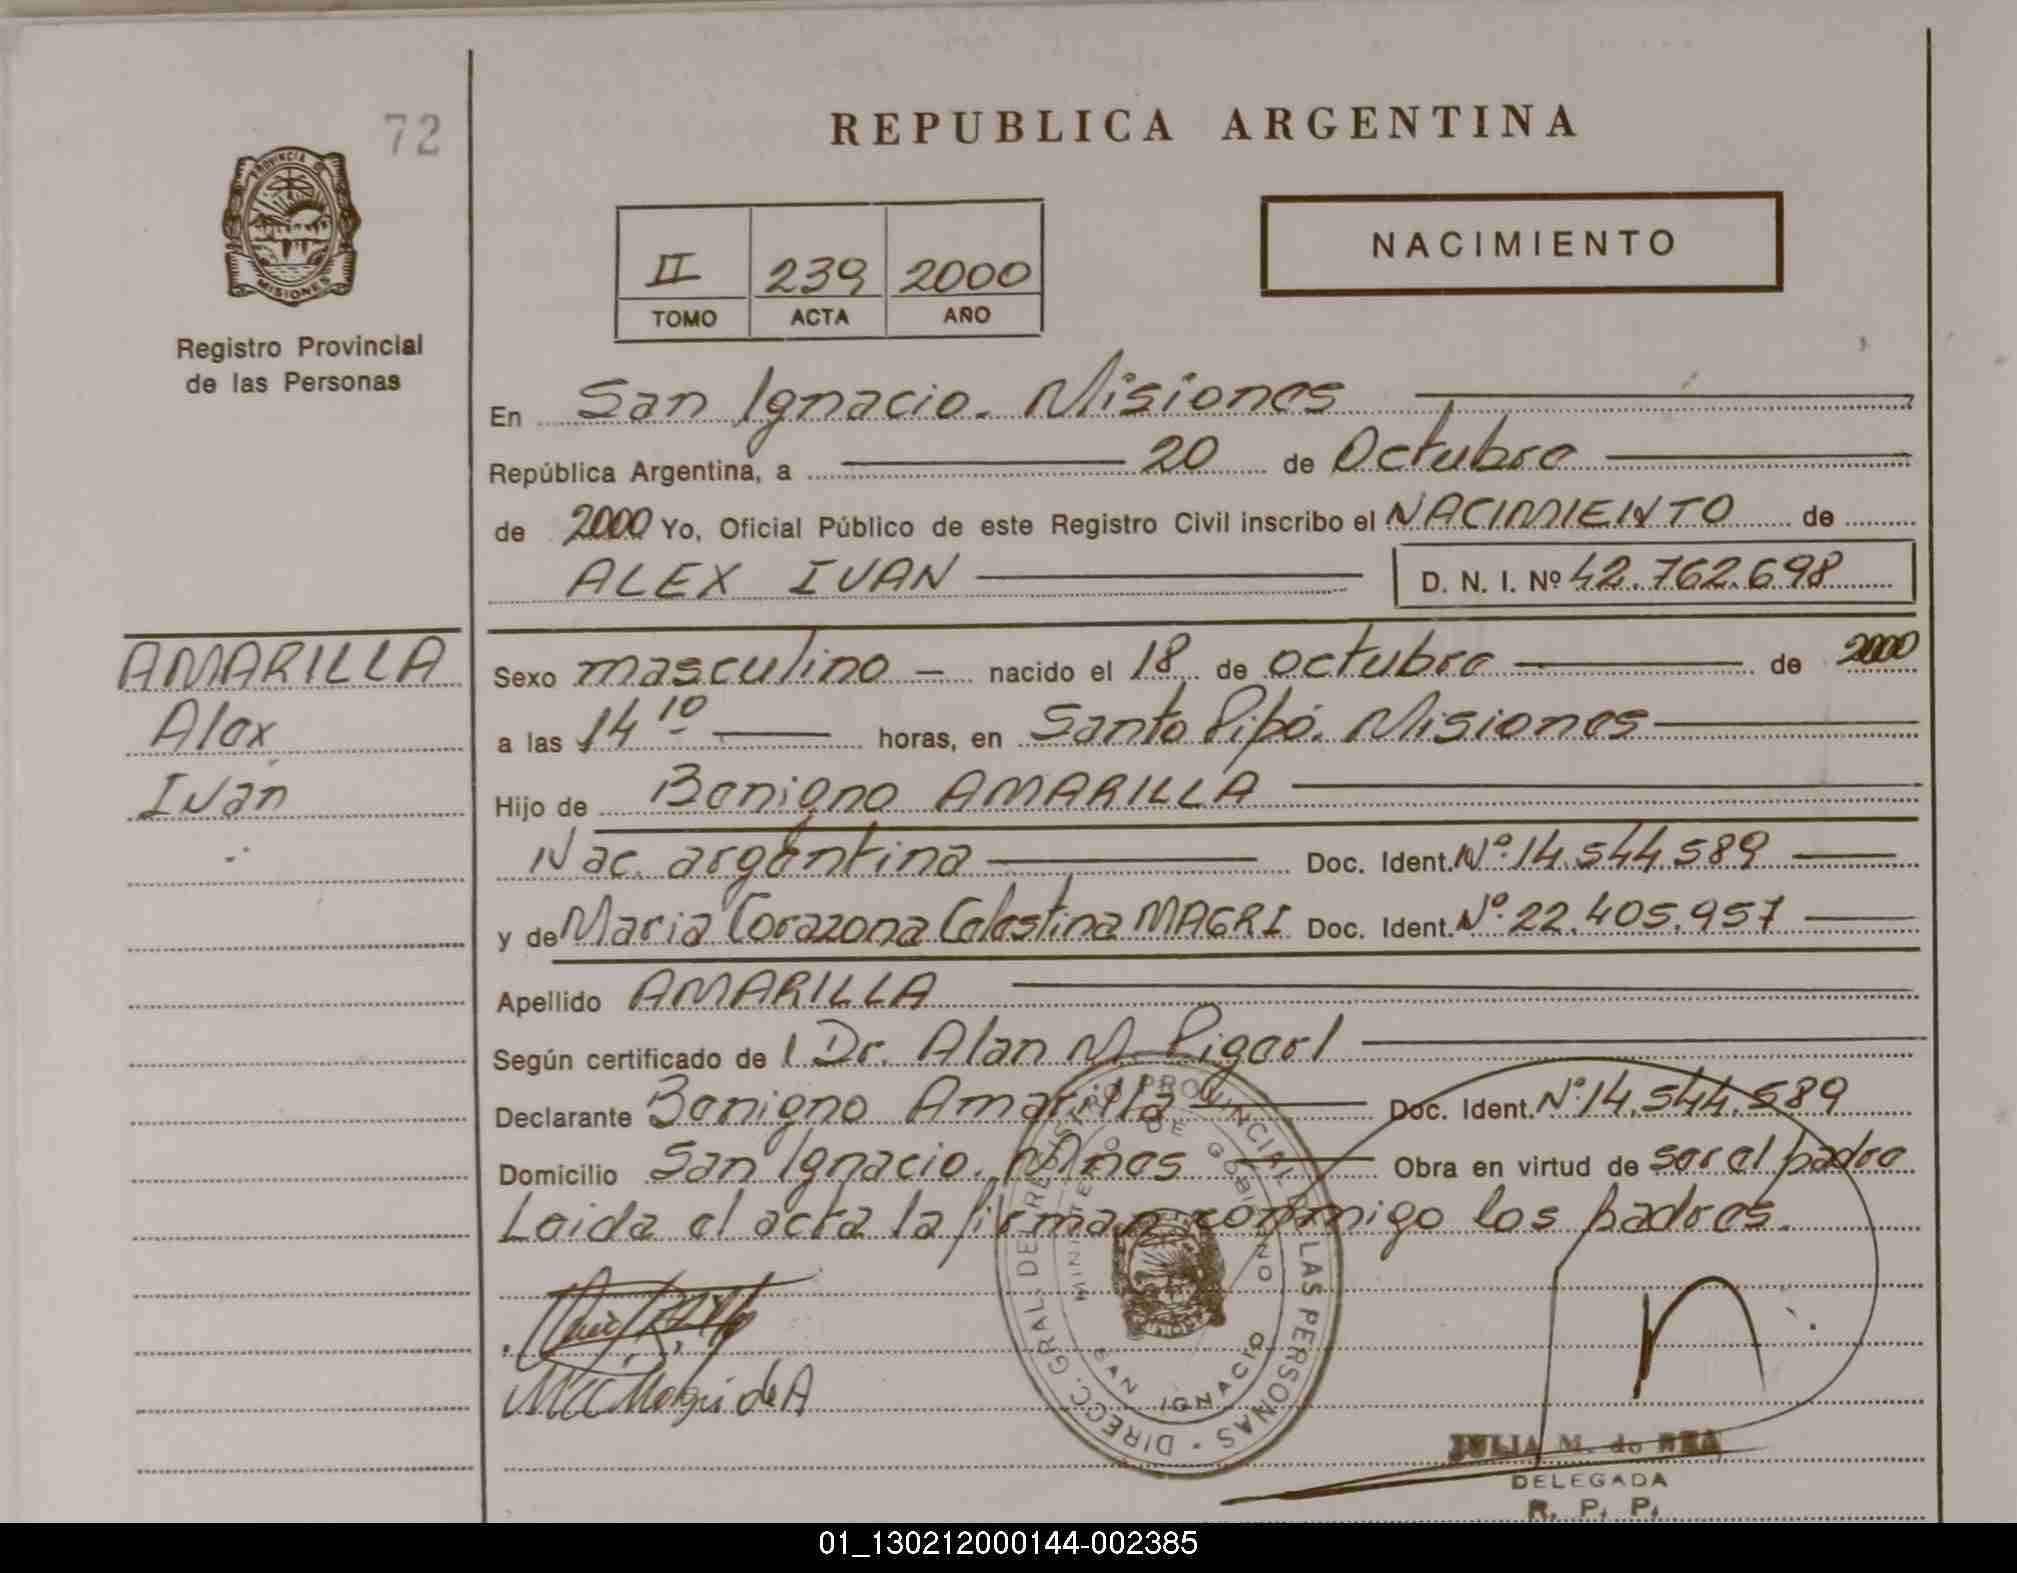 72
REPUBLICA ARGENTINA
PROVINCIA DE
MISIONES
Registro Provincial
de las Personas
II 239 2000
TOMO ACTA AÑO
NACIMIENTO
En San Ignacio. Misiones
República Argentina, a 20 de Octubre
de 2000 Yo, Oficial Público de este Registro Civil inscribo el NACIMIENTO de
ALEX IVAN D. N. I. Nº 42.762.698
AMARILLA
Alex
Ivan
Sexo masculino nacido el 18 de octubre de 2000
a las 14 10 horas, en Santo Pipó. Misiones
Hijo de Benigno AMARILLA
Nac. argentina Doc. Ident. Nº 14.544.589
y de Maria Corazona Celestina MAGRI Doc. Ident. Nº 22.405.957
Apellido AMARILLA
Según certificado de l Dr. Alan M.
Declarante Benigno Amarilla Doc. Ident. Nº 14.544.589
Domicilio San Ignacio. Mnes Obra en virtud de ser el padre
Leida el acta la firman conmigo los padres.
DIRECC. GRAL. DEL REGISTRO PROVINCIAL DE LAS PERSONAS
MINISTERIO DE GOBIERNO
SAN IGNACIO
Magri de A
JULIA M. de
DELEGADA
R. P. P.
01_130212000144-002385